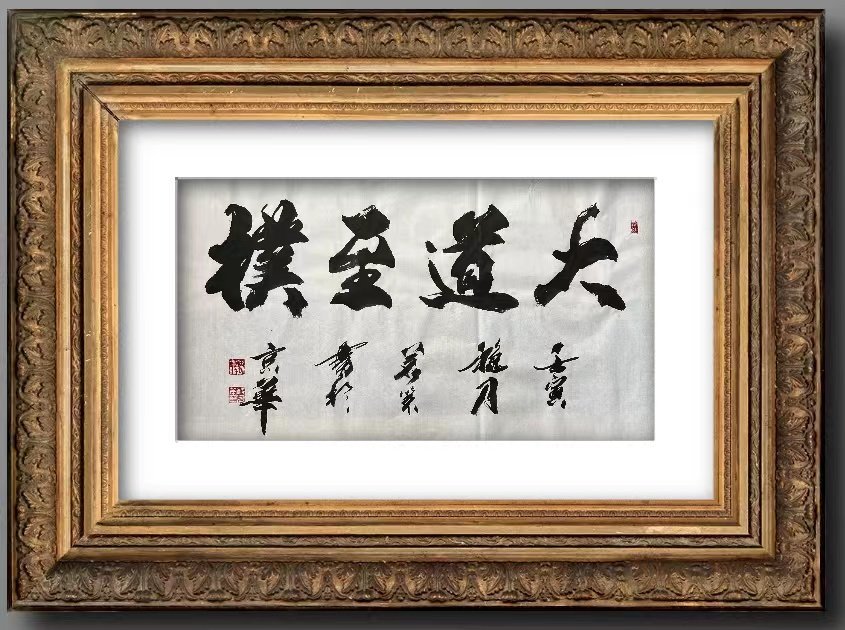 大道至樸
壬寅
月
若
書於
京華